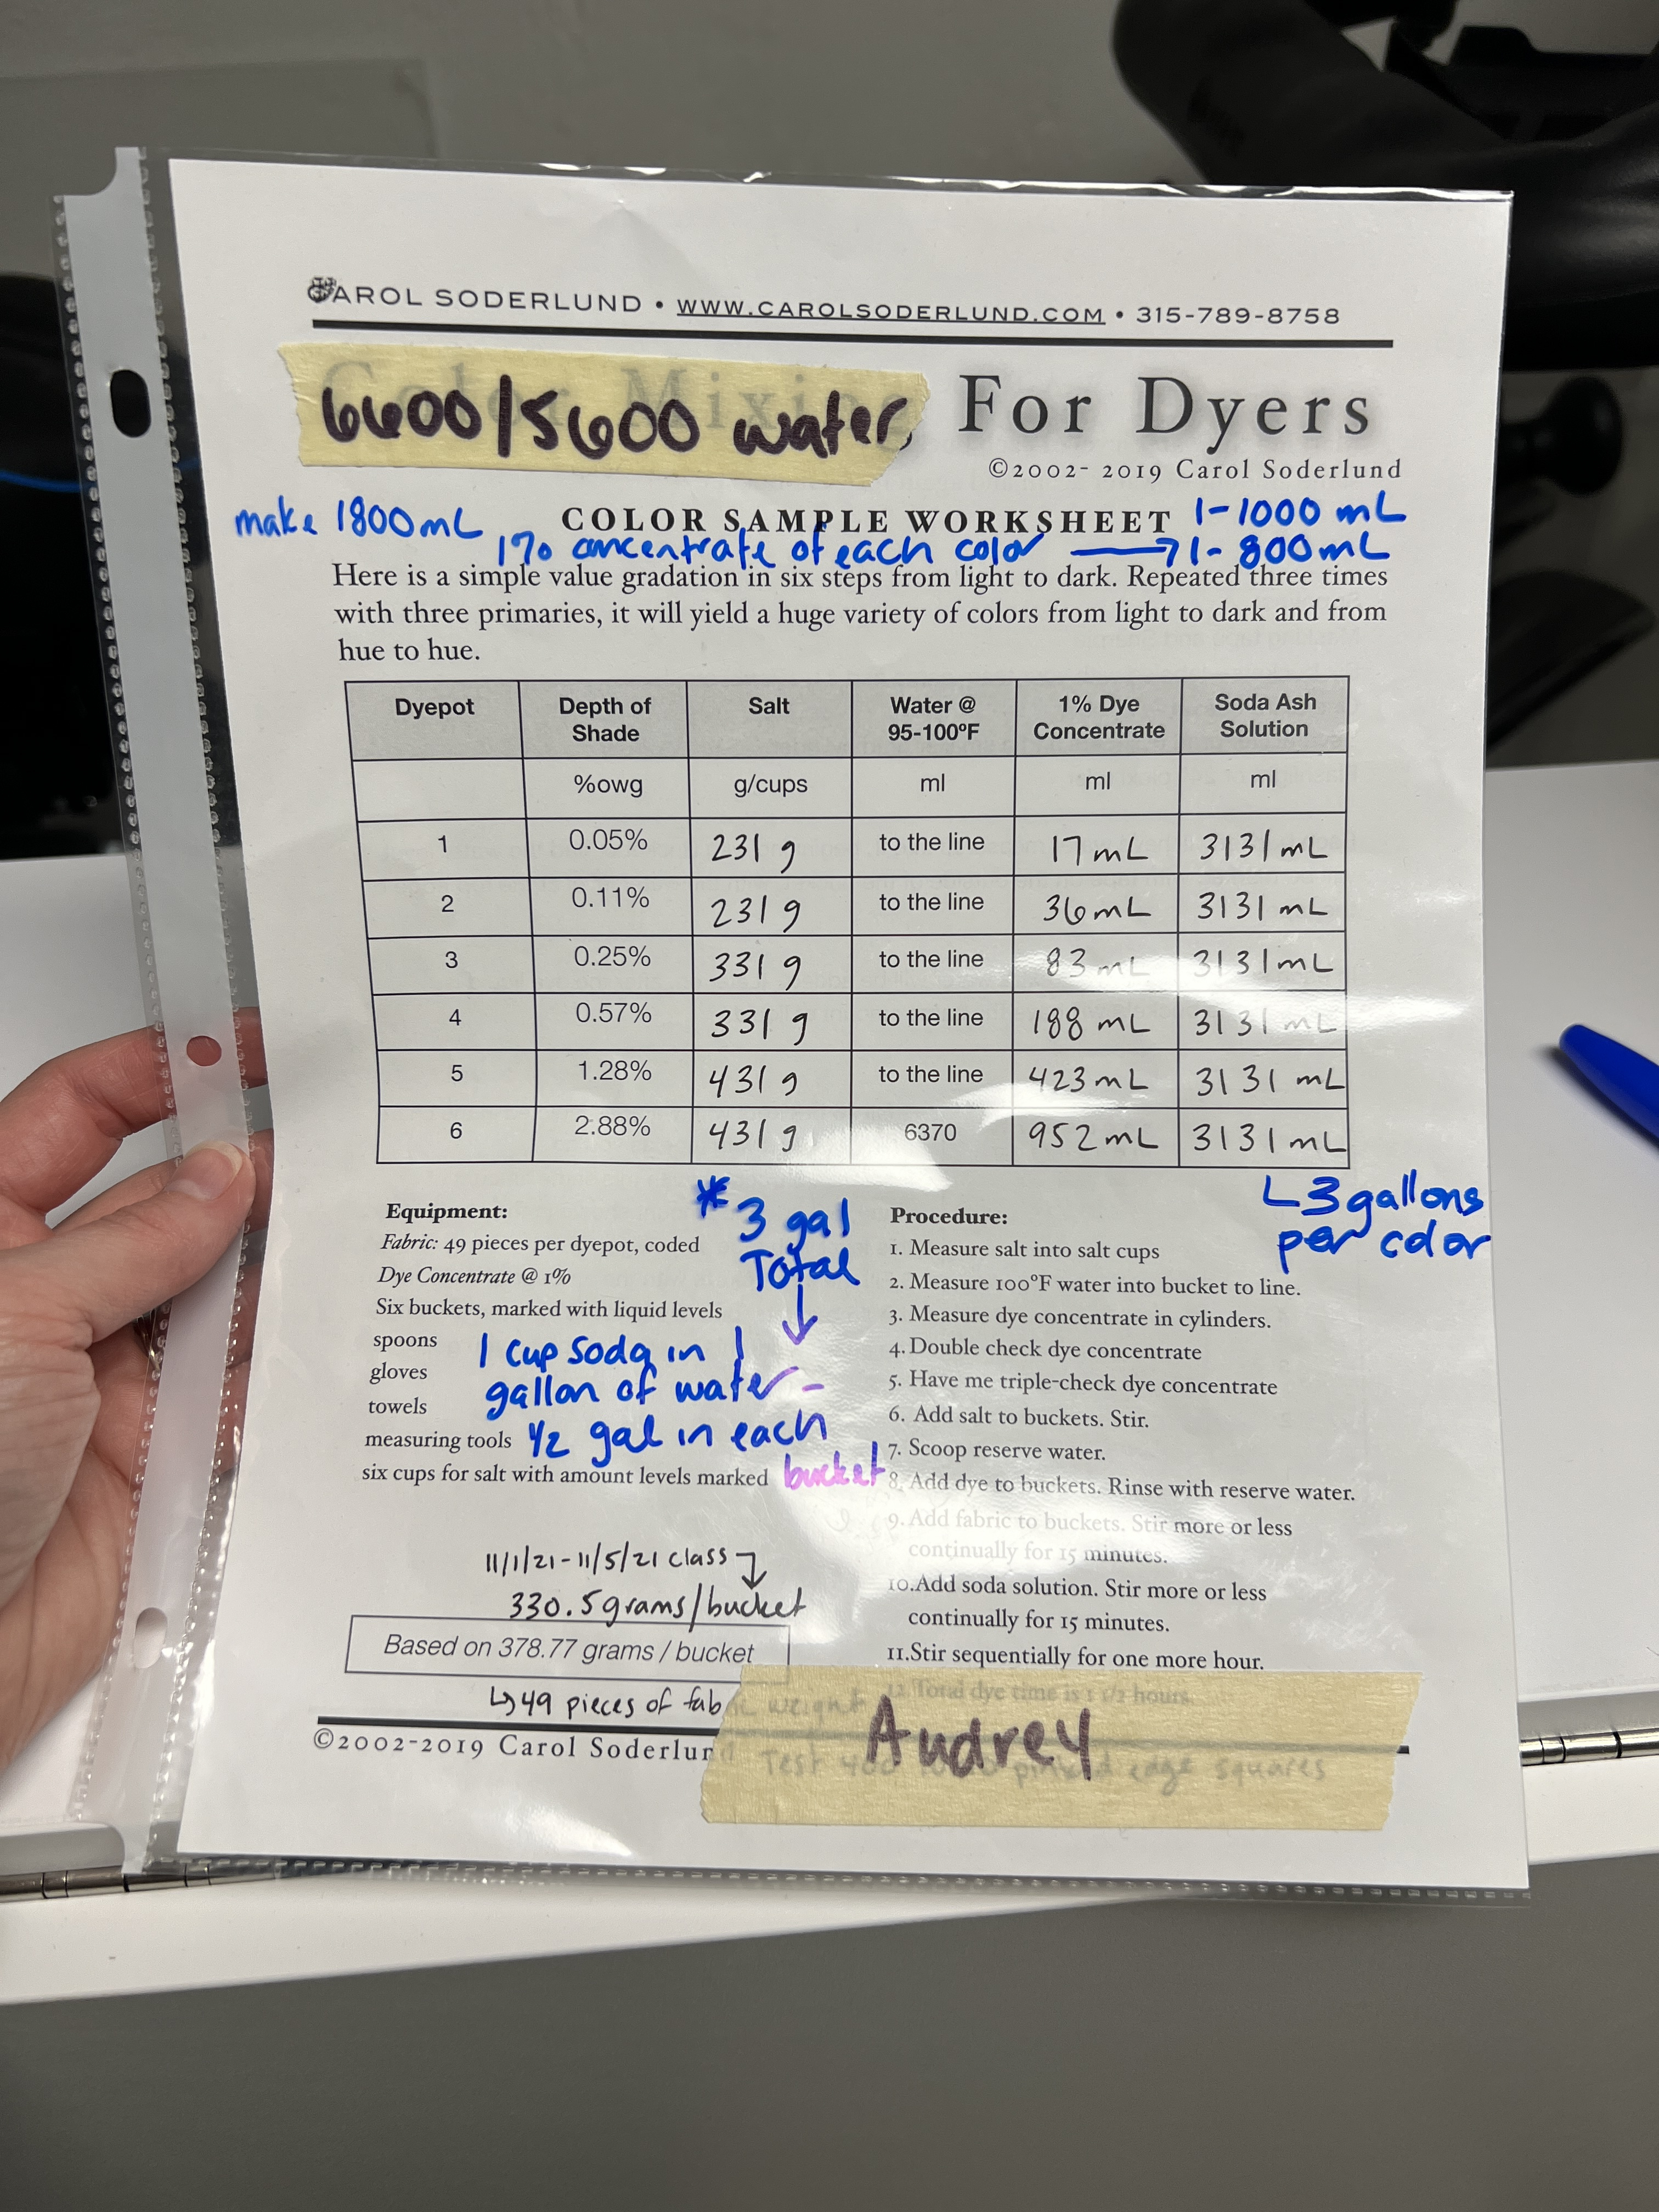 CAROL SODERLUND • WWW.CAROLSODERLUND.COM • 315-789-8758
Color Mixing For Dyers
6600/5600 water
©2002- 2019 Carol Soderlund
make 1800mL COLOR SAMPLE WORKSHEET 1-1000 mL
1% concentrate of each color → 1- 800mL
Here is a simple value gradation in six steps from light to dark. Repeated three times
with three primaries, it will yield a huge variety of colors from light to dark and from
hue to hue.
Dyepot Depth of Shade Salt Water @ 95-100ºF 1% Dye Concentrate Soda Ash Solution
%owg g/cups ml ml ml
1 0.05% 231 g to the line 17 mL 3131 mL
2 0.11% 231 g to the line 36 mL 3131 mL
3 0.25% 331 g to the line 83 mL 3131 mL
4 0.57% 331 g to the line 188 mL 3131 mL
5 1.28% 431 g to the line 423 mL 3131 mL
6 2.88% 431 g 6370 952 mL 3131 mL
3 gallons
per color
* 3 gal
Total
↓
1 cup soda in 1
gallon of water -
1/2 gal in each
bucket
Equipment:
Fabric: 49 pieces per dyepot, coded
Dye Concentrate @ 1%
Six buckets, marked with liquid levels
spoons
gloves
towels
measuring tools
six cups for salt with amount levels marked
11/1/21-11/5/21 class
330.5 grams/bucket
Based on 378.77 grams / bucket
↳ 49 pieces of fabric weight
Procedure:
1. Measure salt into salt cups
2. Measure 100ºF water into bucket to line.
3. Measure dye concentrate in cylinders.
4. Double check dye concentrate
5. Have me triple-check dye concentrate
6. Add salt to buckets. Stir.
7. Scoop reserve water.
8. Add dye to buckets. Rinse with reserve water.
9. Add fabric to buckets. Stir more or less
continually for 15 minutes.
10.Add soda solution. Stir more or less
continually for 15 minutes.
11.Stir sequentially for one more hour.
12. Total dye time is 1 1/2 hours.
©2002-2019 Carol Soderlund
Audrey
Test edge squares